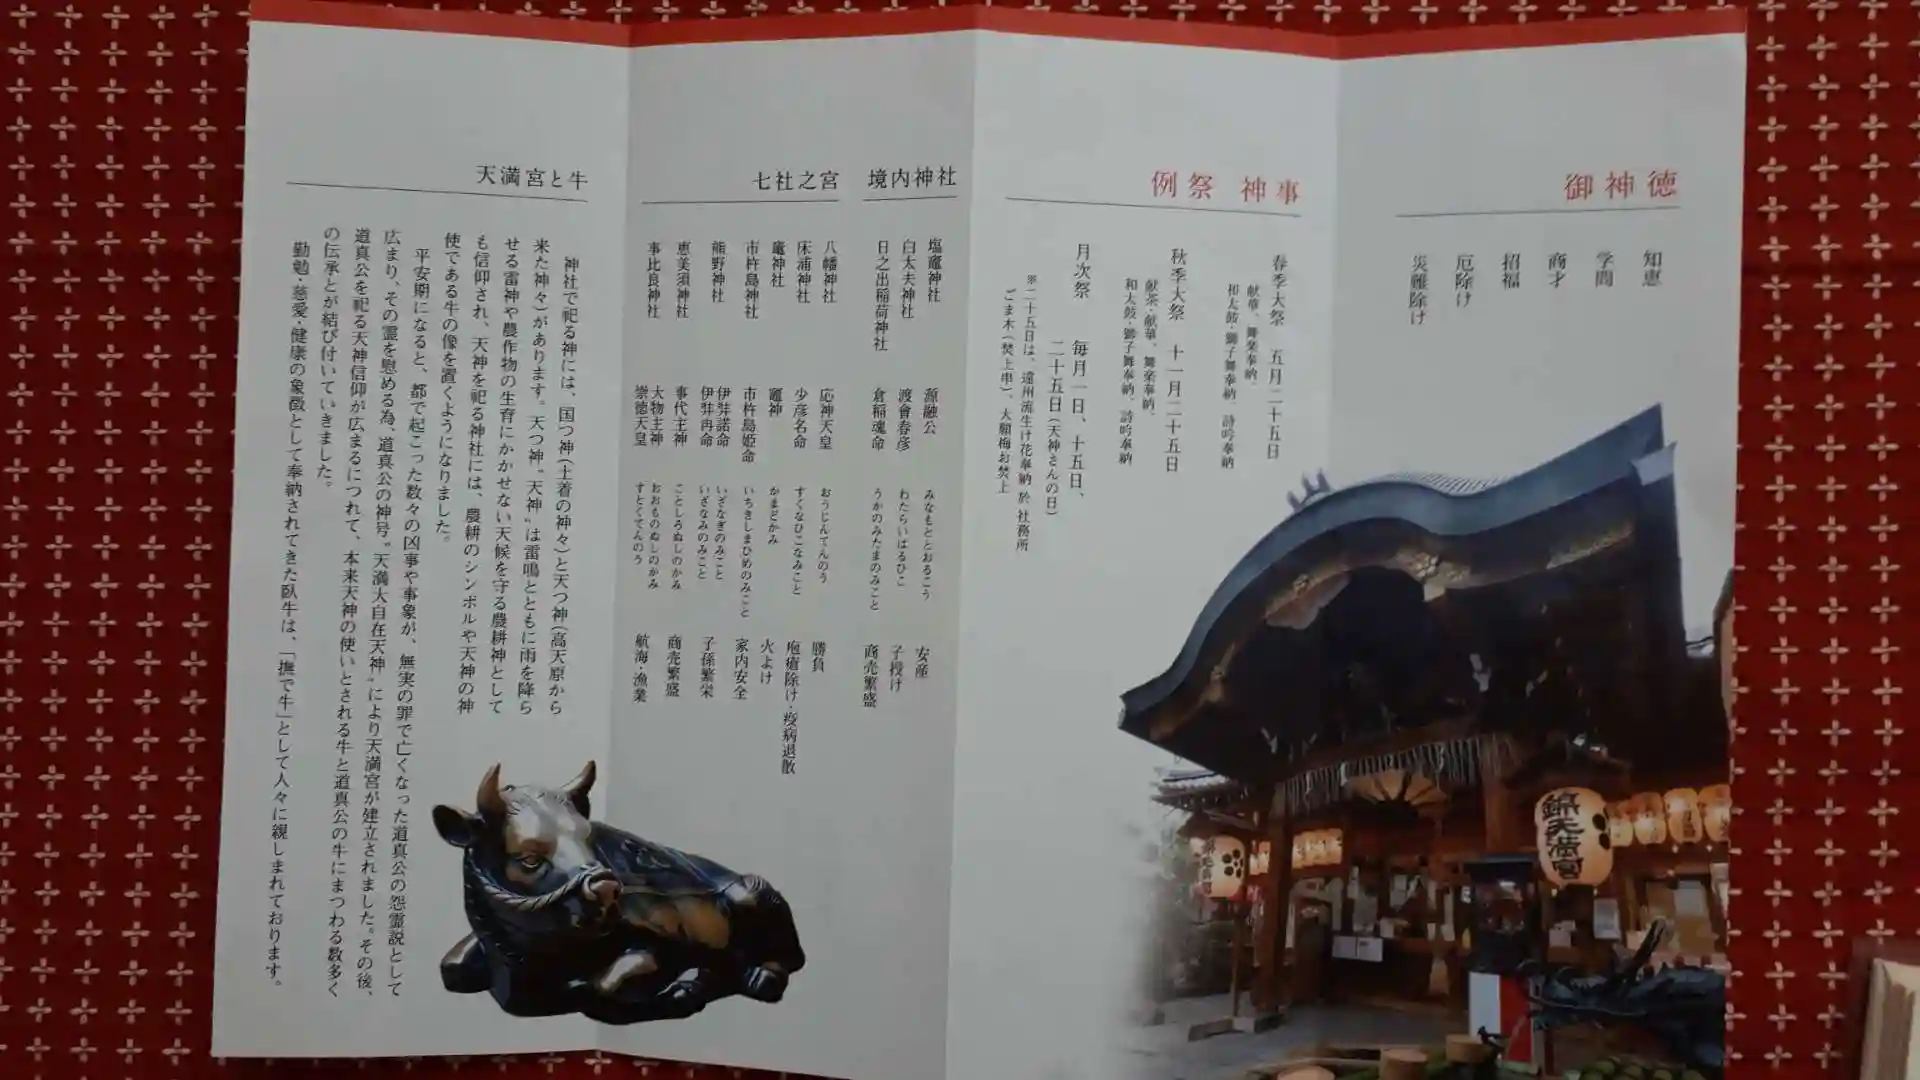 御神徳
知恵
学問
商才
招福
厄除け
災難除け
例祭 神事
春季大祭 五月二十五日
献華、舞楽奉納、
和太鼓・獅子舞奉納、詩吟奉納
秋季大祭 十一月二十五日
献茶・献華、舞楽奉納、
和太鼓・獅子舞奉納、詩吟奉納
月次祭 毎月一日、十五日、
二十五日(天神さんの日)
※二十五日は、遠州流生け花奉納 於 社務所
ごま木(焚上串)、大願梅お焚上
境内神社
塩竈神社 源融公 みなもととおるこう 安産
白太夫神社 渡會春彦 わたらいはるひこ 子授け
日之出稲荷神社 倉稲魂命 うかのみたまのみこと 商売繁盛
七社之宮
八幡神社 応神天皇 おうじんてんのう 勝負
床浦神社 少彦名命 すくなひこなみこと 疱瘡除け・疫病退散
竈神社 竈神 かまどかみ 火よけ
市杵島神社 市杵島姫命 いちきしまひめのみこと 家内安全
熊野神社 伊弉諾命 いざなぎのみこと 子孫繁栄
伊弉冉命 いざなみのみこと
恵美須神社 事代主神 ことしろぬしのかみ 商売繁盛
事比良神社 大物主神 おおものぬしのかみ 航海・漁業
崇徳天皇 すとくてんのう
天満宮と牛
神社で祀る神には、国つ神(土着の神々)と天つ神(高天原から
来た神々)があります。天つ神〝天神〟は雷鳴とともに雨を降ら
せる雷神や農作物の生育にかかせない天候を守る農耕神として
も信仰され、天神を祀る神社には、農耕のシンボルや天神の神
使である牛の像を置くようになりました。
平安期になると、都で起こった数々の凶事や事象が、無実の罪で亡くなった道真公の怨霊説として
広まり、その霊を慰める為、道真公の神号〝天満大自在天神〟により天満宮が建立されました。その後、
道真公を祀る天神信仰が広まるにつれて、本来天神の使いとされる牛と道真公の牛にまつわる数多く
の伝承とが結び付いていきました。
勤勉・慈愛・健康の象徴として奉納されてきた臥牛は、「撫で牛」として人々に親しまれております。
錦天満宮